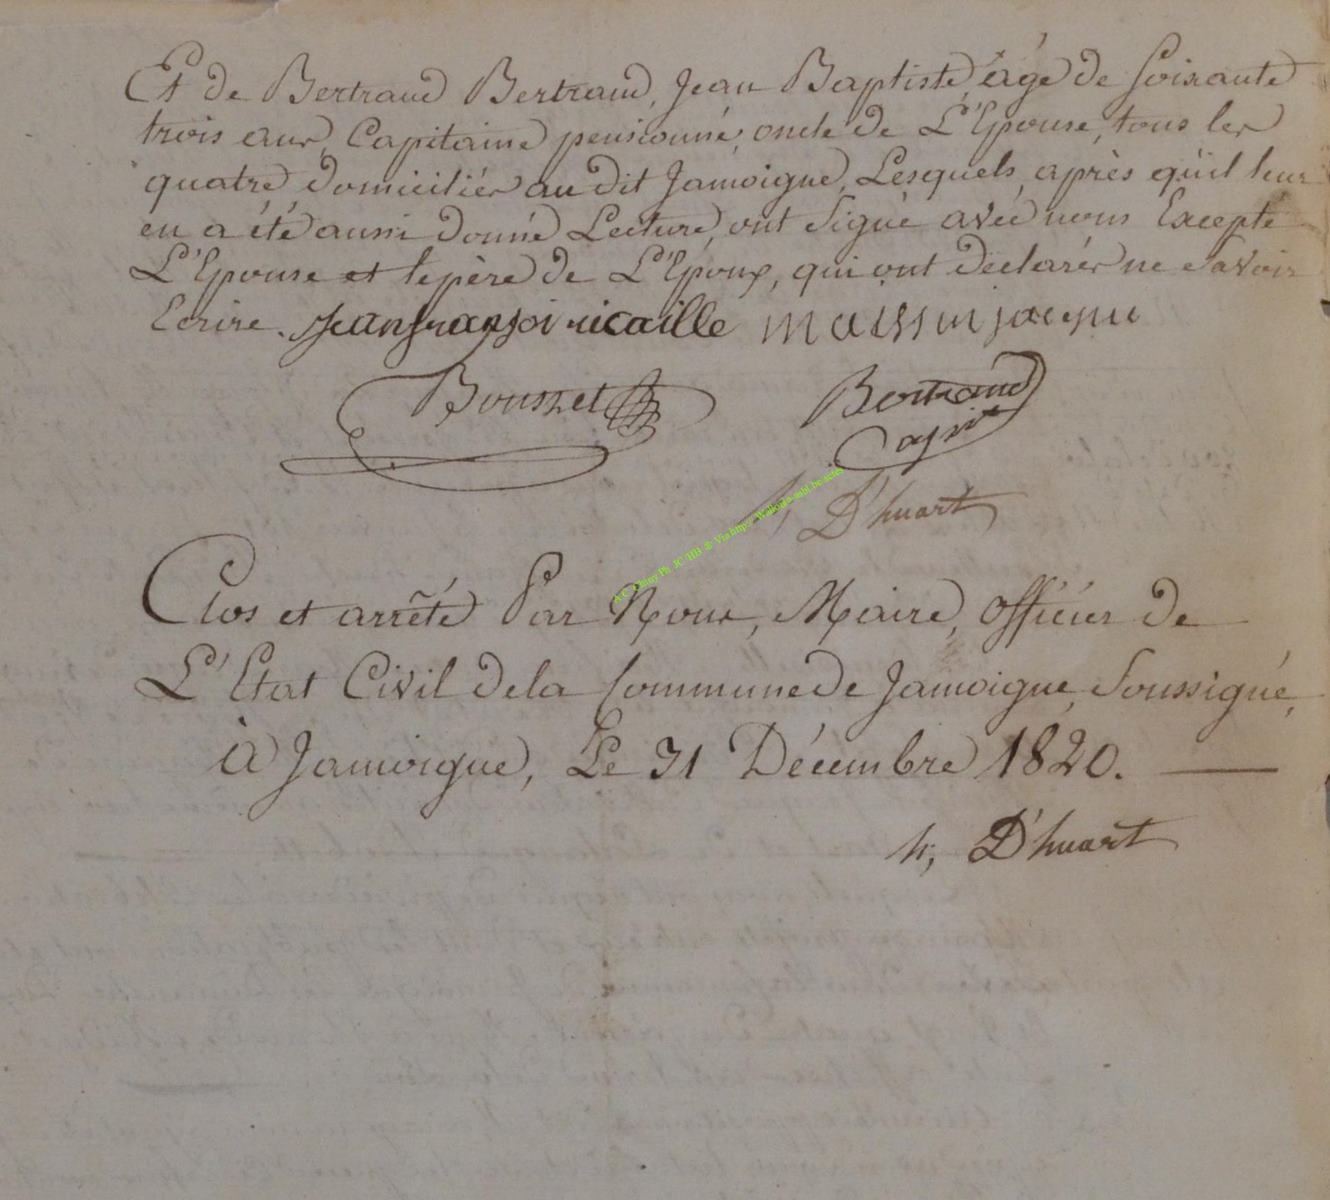 Et de Bertrand Bertrand, Jean Baptiste, âgé de Soixante
trois ans, Capitaine pensionné, oncle de L'Epouse, tous les
quatre domiciliés au dit Jamoigne, Lesquels, après qu'il leur
en a été aussi donné Lecture, ont Signé avec nous Excepté
L'Epouse et le père de L'Epoux, qui ont déclarés ne Savoir
Ecrire. jean franҫoi ricaille maissin jacque
Bousset Bertrand
Capit
h, D'huart
A.C. Chiny Ph JC/HH & Via https
Clos et arrêté Par Nous, Maire, Officier de
L'Etat Civil de la Commune de Jamoigne, Soussigné,
à Jamoigne, Le 31 Décembre 1820.
h, D'huart